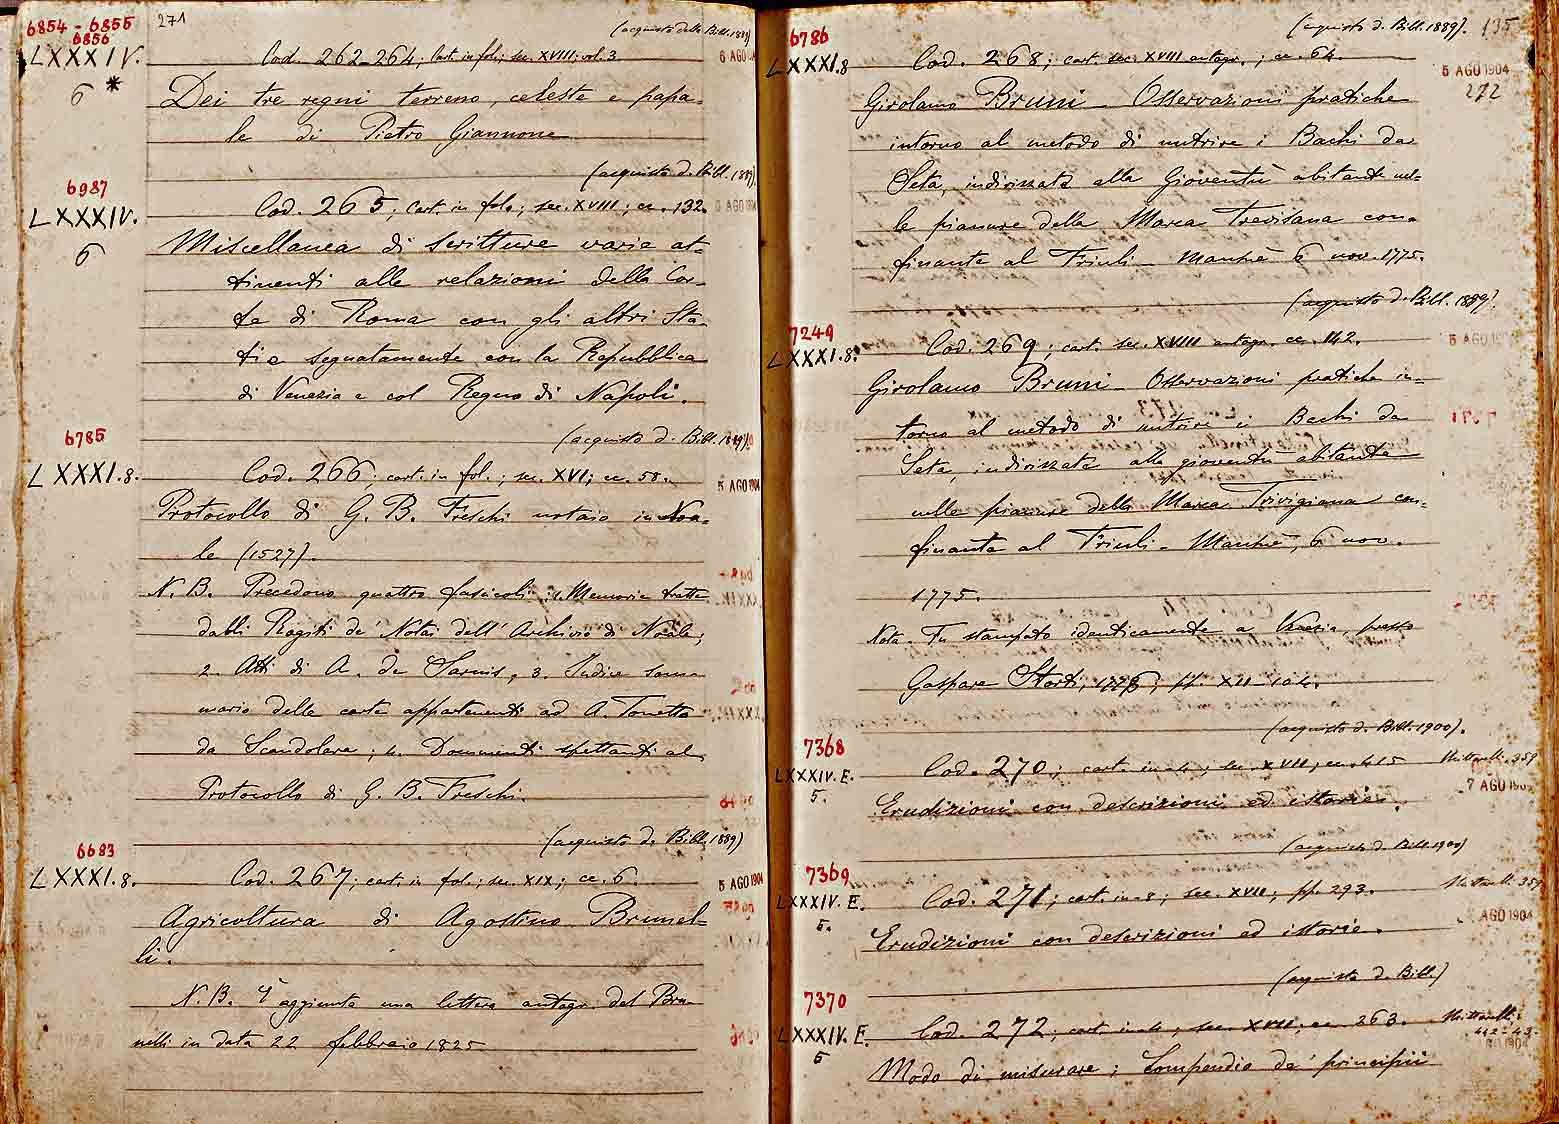 6854 - 6855
6856
271
(acquisto della Bibl. 1889)
LXXXIV.
6 *
Cod. 262-264; Cart. in fol.; sec. XVIII; vol. 3
6 AGO
Dei tre regni terreno, celeste e papa=
le di Pietro Giannone
(acquisto d. Bibl. 1889)
6987
LXXXIV.
6
Cod. 265; Cart. in fol.; sec. XVIII; cc. 132.
AGO 1904
Miscellanea di scritture varie at=
tinenti alle relazioni della Cor=
te di Roma con gli altri Sta=
ti e segnatamente con la Repubblica
di Venezia e col Regno di Napoli.
(acquisto d. Bibl. 1889)
6785
LXXXI.8.
Cod. 266; cart. in fol.; sec. XVI; cc. 58.
5 AGO 1904
Protocollo di G. B. Freschi notaio in Noa=
le (1527).
N. B. Precedono quattro fascicoli: 1. Memorie tratte
dalli Rogiti de' Notai dell' Archivio di Noale;
2. Atti di A. de Sarnis, 3. Indice som=
mario delle carte appartenenti ad A. Tonetto
da Scandolara; 4. Documenti spettanti al
Protocollo di G. B. Freschi.
(acquisto d. Bibl. 1889)
6683
LXXXI.8.
Cod. 267; cart. in fol.; sec. XIX; cc. 6.
5 AGO 1904
Agricoltura di Agostino Brunel=
li.
N. B. È aggiunta una lettera autogr. del Bru=
nelli in data 22 febbraio 1825
(acquisto d. Bibl. 1889).
135
6786
LXXXI.8
Cod. 268; cart. sec. XVIII autogr.; cc. 64.
5 AGO 1904
272
Girolamo Bruni - Osservazioni pratiche
intorno al metodo di nutrire i Bachi da
Seta, indirizzate alla Gioventù abitante nel=
le pianure della Marca Trevisana con=
finante al Friuli - Mansuè 6 nov. 1775.
(acquisto d. Bibl. 1889).
7249
LXXXI.8.
Cod. 269; cart. sec. XVIII autogr. cc. 142.
5 AGO
Girolamo Bruni - Osservazioni pratiche in=
torno al metodo di nutrire i Bachi da
Seta, indirizzate alla gioventù abitante
nelle pianure della Marca Trivigiana con=
finante al Friuli - Mansuè, 6 nov.
1775.
Nota. Fu stampato identicamente a Venezia, presso
Gaspare Storti, 1776; pp. XII-104.
(acquisto d. Bibl. 1900).
7368
LXXXIV. E.
5.
Cod. 270; cart. in 4; sec. XVII; cc. 415
Mittarelli. 359
7 AGO 190
Erudizioni con descrizioni ed istorie.
(acquisto d. Bibl. 1900)
7369
LXXXIV. E.
5.
Cod. 271; cart. in 8; sec. XVII; pp. 293.
Mittarelli. 359
AGO 1904
Erudizioni con descrizioni ed istorie.
(acquisto d. Bibl.)
7370
LXXXIV. E.
5
Cod. 272; cart. in 4; sec. XVII; cc. 263.
Mittarelli.
442-43
1904
Modo di misurare; Compendio de' principii